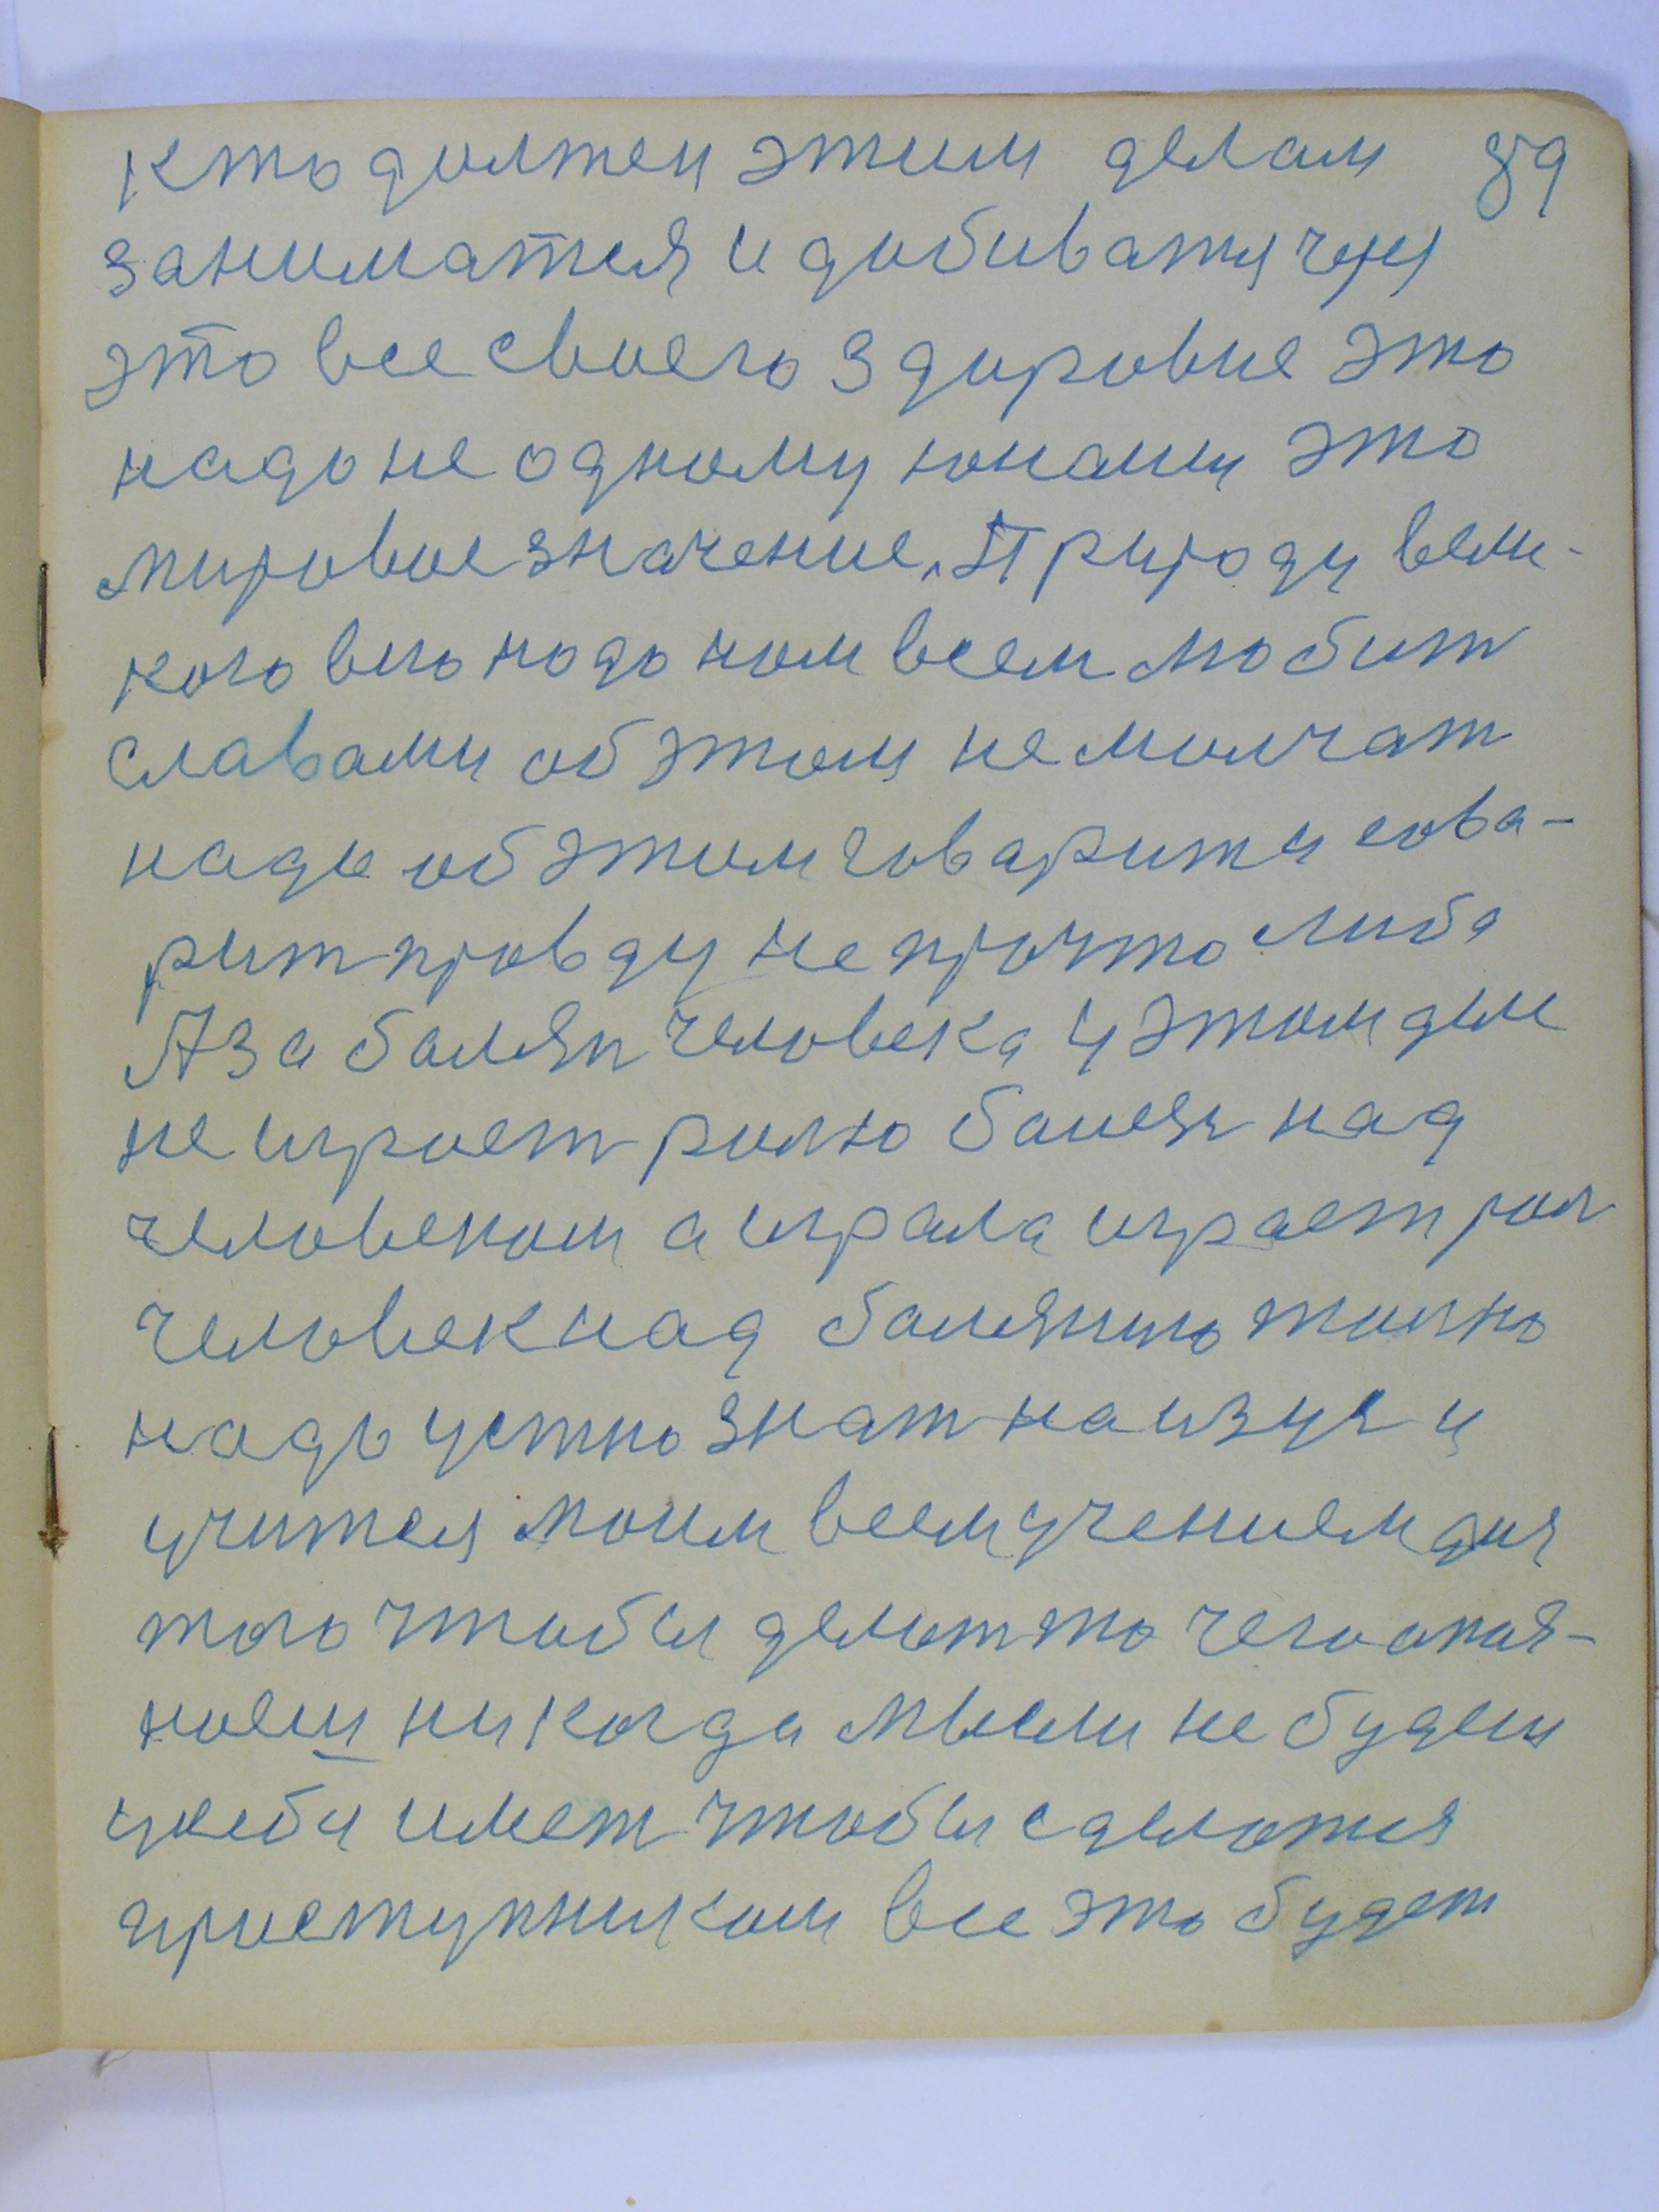 кто должен этим делам 89
заниматся и добиватя через
это все своего здоровие это
надо не одному юнашу это
мировое значение, Природу вели-
кого его надо нам всем любит
славами об этом не молчат
надо об этим говарит и гова-
рит правду не про что либа
А за балезн человека у этом деле
не играет ролю балезн над
человеком а играла играет рол
человек над балезнию только
надо устно знат наизус и
учится моим всем учением для
того чтобы делат то чего опаз-
ноеш никогда мысли не будеш
усебя имет чтобы сделатся
приступником все это будет